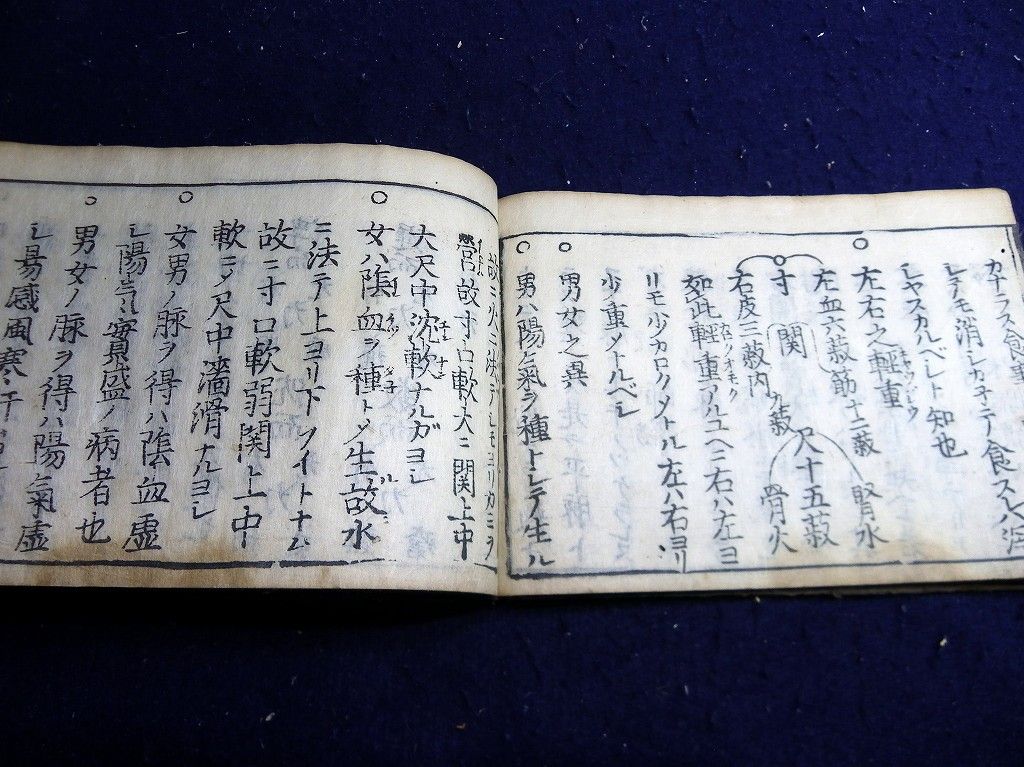 カナラス食事
レテモ消レカ子テ食スレハ浮
レヤスカルベレト知也
左右之軽重
左血六菽筋十二菽 腎水
寸 関 尺十五菽
右皮三菽内九菽 骨火
如此軽重アルユヘニ右ハ左ヨ
リモ少カロクノメトル左ハ右ヨリ
少重メトルベレ
男女之異
男ハ陽氣ヲ種トレテ生ル
故ニ火ニ法テレモヨリカミヲ
営故寸口軟大ニ関上中
大尺中沈軟ナルガヨレ
女ハ陰血ヲ種トメ生故水
ニ法テ上ヨリ下ヲイトナム
故ニ寸口軟弱関上中
軟ニノ尺中濇滑ナルヨレ
女男ノ脉ヲ得ハ陰血虚
レ陽氣実盛ノ病者也
男女ノ脉ヲ得ハ陽氣虚
レ易感風寒